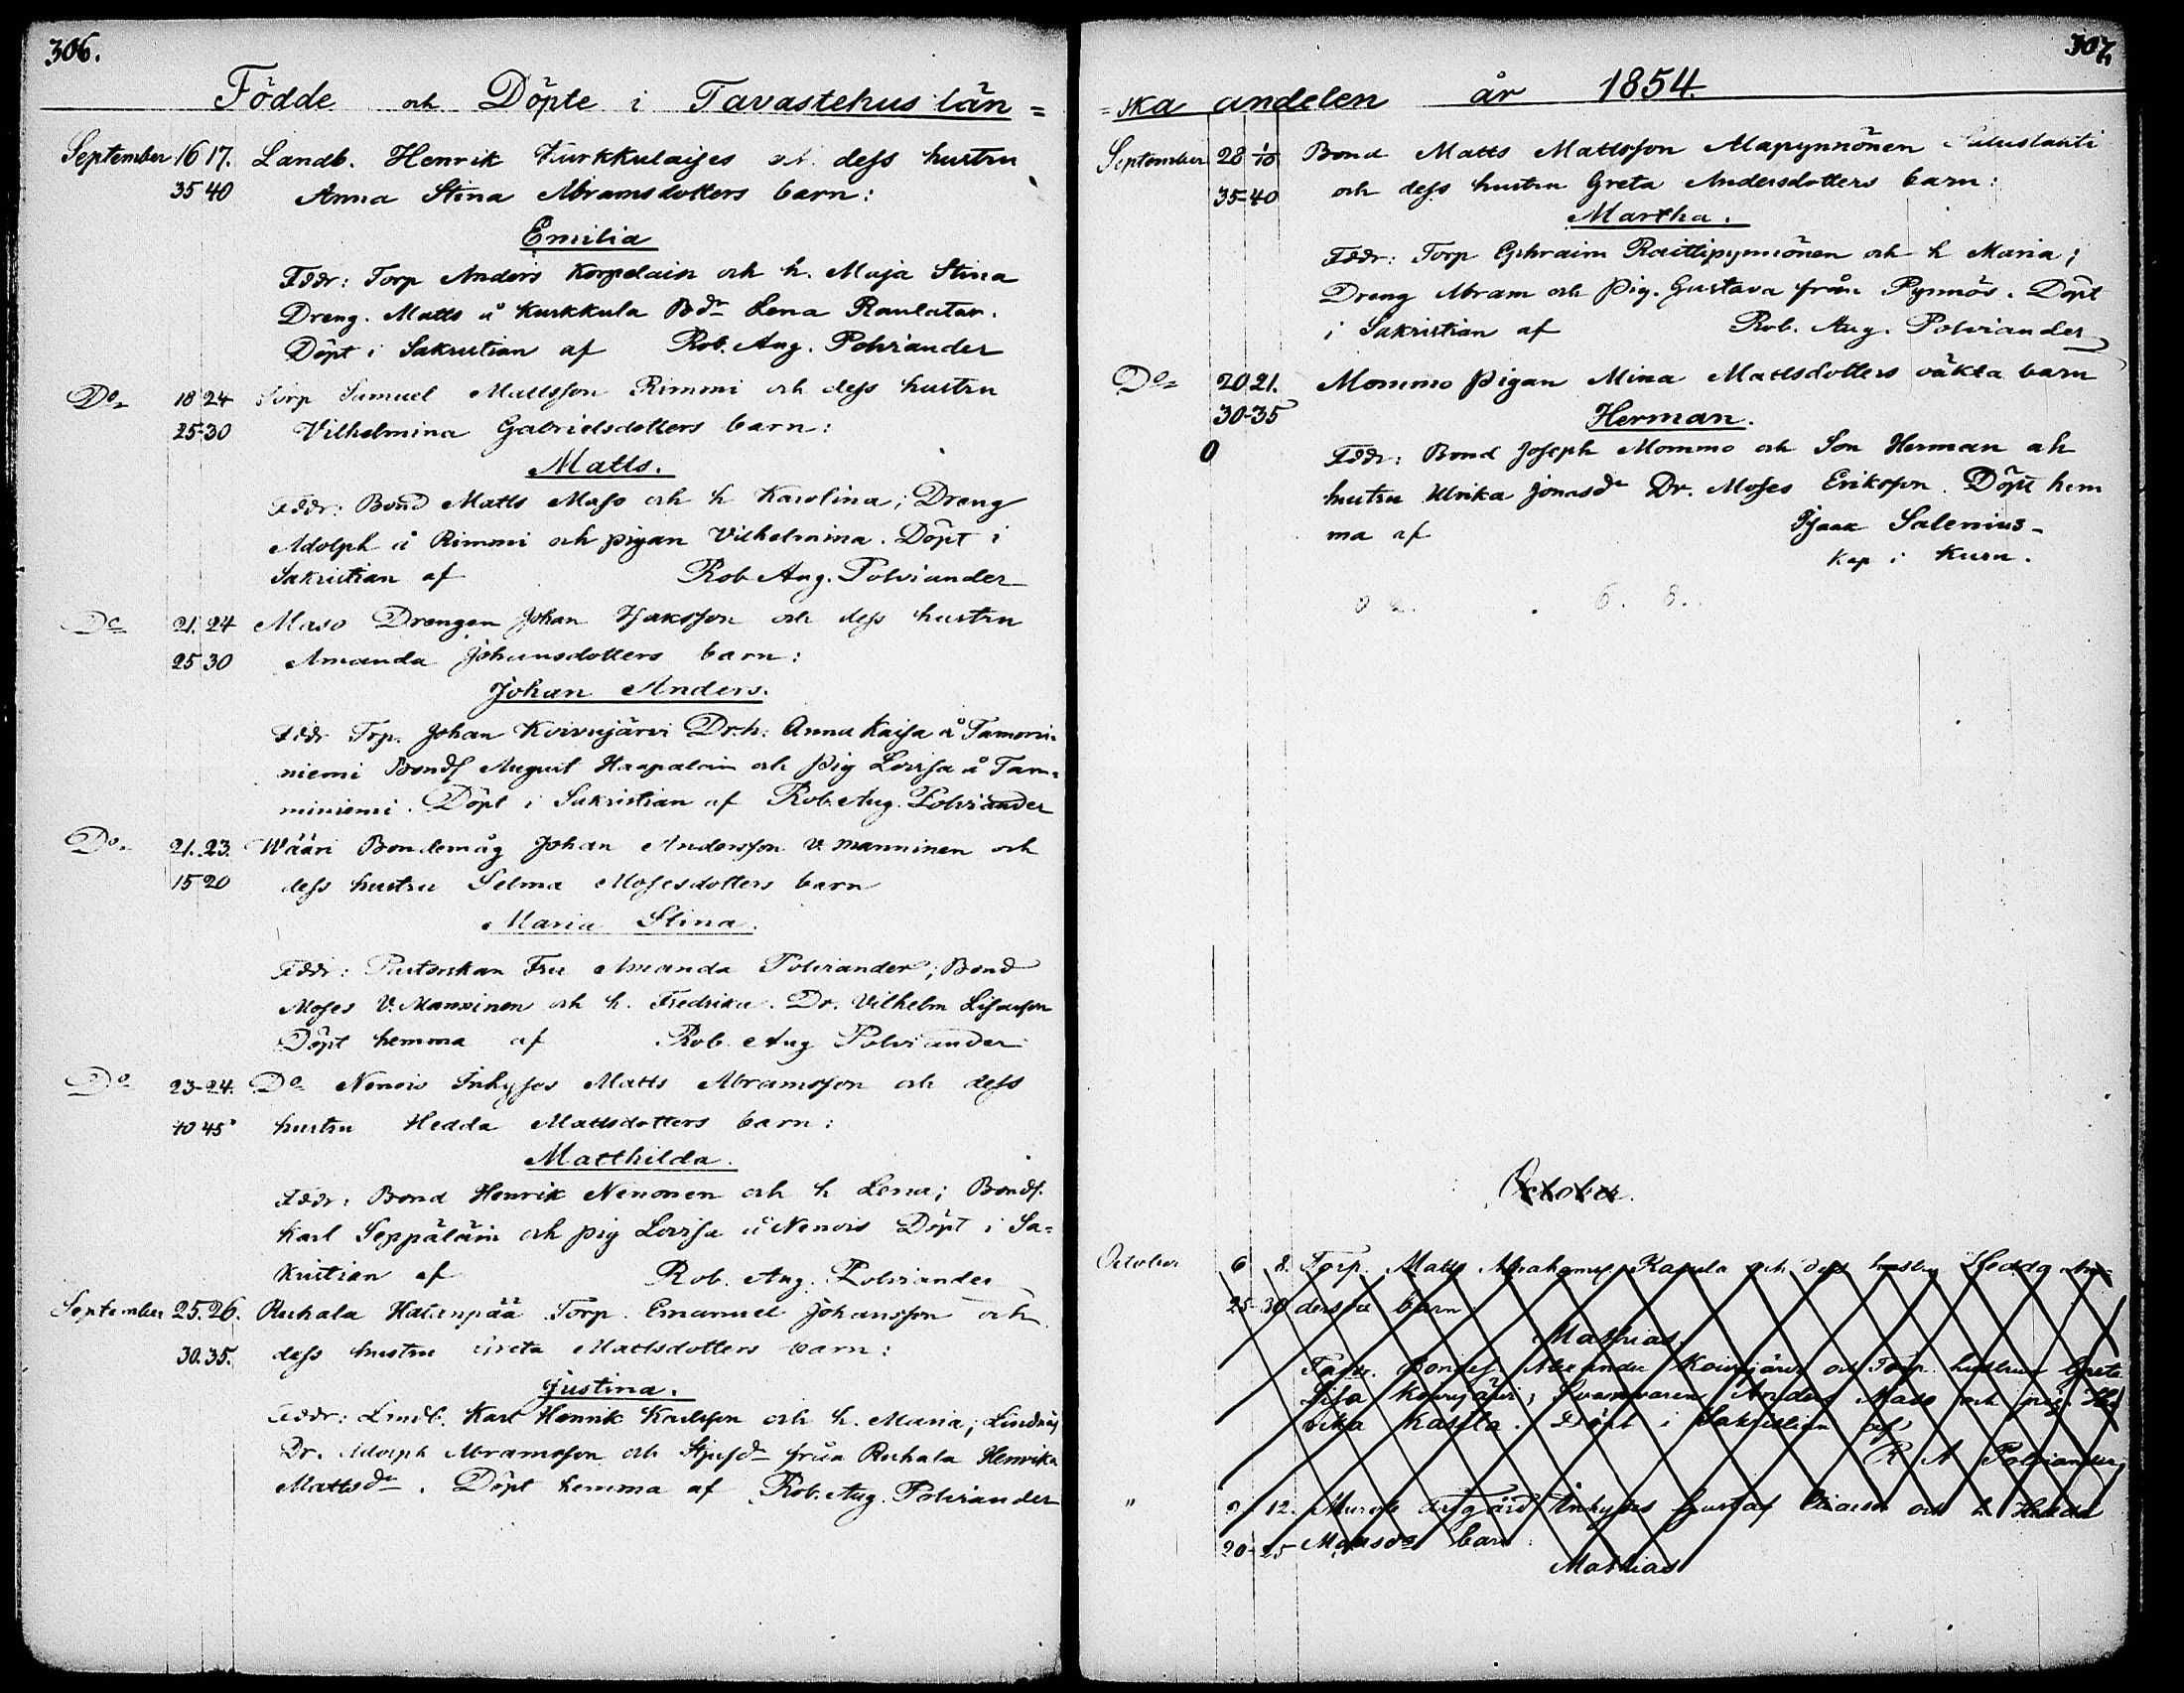 306.
Födde och Döpte i Tavastehus län=
September 16 17. Landb. Henrik Kurkkulaises och dess hustru
35 40 Anna Stina Abramsdotters barn:
Emilia
Fddr: Torp Anders Korpelain och h. Maja Stina
Dreng. Matts å Kurkkula Bdr Lena Raulatar.
Döpt i Sakristian af Rob. Aug. Polviander
Do 18 24 Torp Samuel Mattsson Rimmi och dess hustru
25-30 Vilhelmina Gabrielsdotters barn:
Matts.
Fddr: Bond Matts Maso och h Karolina; Dreng
Adolph å Rimmi och pigan Vilhelmina. Döpt i
Sakristian af Rob. Aug. Polviander
Do 21. 24 Maso Drengen Johan Isaksson och dess hustru
25 30 Amanda Johansdotters barn:
Johan Anders.
Fddr Trp. Johan Koivujärvi Dr.h. Anna Kaisa å Tammi-
niemi Bonds August Haapalain och Pig Lovisa å Tam-
miniemi. Döpt i Sakristian af Rob. Aug. Polviander
Do. 21. 23. Wääri Bondemåg Johan Andersson V. Manninen och
15 20 dess hustru Selma Mosesdotters barn
Maria Stina.
Fddr: Pastorskan Fru Amanda Polviander; Bond
Moses V. Manninen och h. Fredrika. Dr. Vilhelm
Döpt hemma af Rob. Aug Polviander
Do 23-24. Do Nenois Inhyses Matts Abramsson och dess
40 45 hustru Hedda Mattsdotters barn:
Matthilda.
Fddr: Bond Henrik Nenonen och h Lena; Bonds.
Karl Seppäläin och pig Lovisa å Nenois Döpt i Sa-
kristian af Rob. Aug. Polviander
September 25. 26. Ruhala Hatanpää Torp. Emanuel Johansson och
30. 35. dess hustru Greta Mattsdotters barn:
Justina.
Fddr: Landb. Karl Henrik Karlsson och h. Maria;
Dr. Adolph Abramsson och från Ruhala Henrika
Mattsdr. Döpt hemma af Rob. Aug. Polviander
307.
=ska andelen år 1854.
September 28 1/10 Bond Matts Mattsson Alapynnönen
35-40 och dess hustru Greta Andersdotters barn:
Martha.
Fddr: Torp Ephraim Raittipynnönen och h Maria;
Dreng Abram och Pig. Gustava från Pynnös. Döpt
i Sakristian af Rob. Aug. Polviander
Do 20 21. Mommo Pigan Mina Mattsdotters oäkta barn
30-35 Herman.
0 Fddr: Bond Joseph Mommo och Son Herman och
hustru Ulrika Jonasdr Dr. Moses Eriksson. Döpt hem
ma af Isaac Salenius-
Kap i Kuru.
6. 8.
October.
October 6 8. Torp. Matts Kapula och dess hustru Hedda An-
25-30 barn
Mathias.
Faddr. Bondes. Alexander Koivujärvi och Torp. hustrun Greta
Lisa Koivujärvi; Anders Maso och pig. He
Kapula. Döpt i Sakristian af
R A Polviander
" 9 12. Inhyses Gustaf och h Hedda
20-25 barn:
Mathias